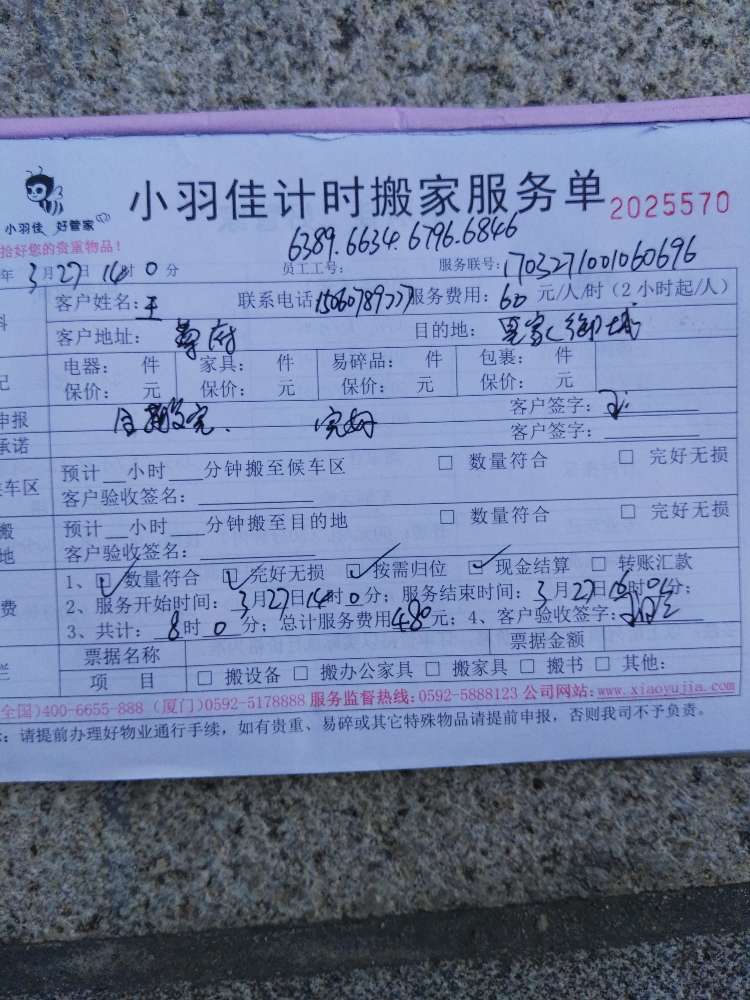 小羽佳计时搬家服务单 2025570
小羽佳 好管家
拾好您的贵重物品！
6389.6634.6796.6846
年 3月27日 14时 0 分 员工工号： 服务联号：1703271001060696
客户姓名：王 联系电话15060789777服务费用：60 元/人/时（2小时起/人）
客户地址： 府 目的地：
电器： 件 家具： 件 易碎品： 件 包裹： 件
保价： 元 保价： 元 保价： 元 保价： 元
申报 完好 客户签字：
承诺 客户签字：
车区 预计__小时___分钟搬至候车区 □ 数量符合 □ 完好无损
客户验收签名：
搬 预计__小时___分钟搬至目的地 □ 数量符合 □ 完好无损
地 客户验收签名：
1、☑ 数量符合 ☑ 完好无损 ☑ 按需归位 ☑ 现金结算 □ 转账汇款
费 2、服务开始时间：3月27日14时0分；服务结束时间：3月27日16时0分；
3、共计：8时 0 分；总计服务费用480元；4、客户验收签字：
栏 票据名称 票据金额
项 目 □ 搬设备 □ 搬办公家具 □ 搬家具 □ 搬书 □ 其他：
全国)400-6655-888 (厦门)0592-5178888 服务监督热线:0592-5888123 公司网站:www.xiaoyujia.com
：请提前办理好物业通行手续，如有贵重、易碎或其它特殊物品请提前申报，否则我司不予负责。